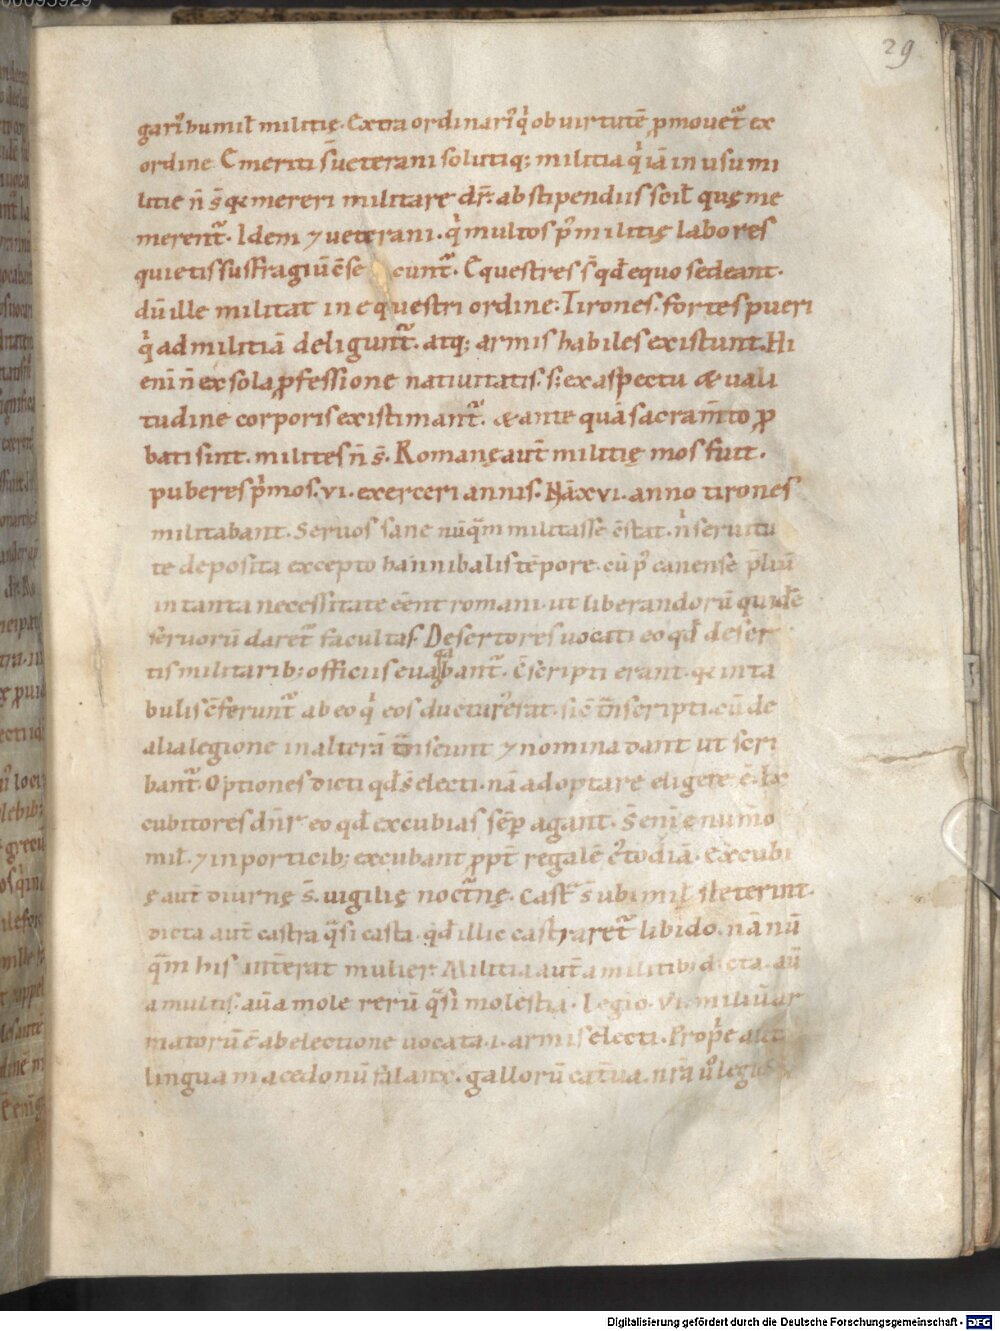 29
garibus mil militię. Extra ordinarı̓ q̓ ob uirtutē ꝓmouet᷑ ex
ordine. Emeriti s̄ ueterani solutiq; militia q̓ iā in usu mi
litie ñ s̄ & mereri militare dr̄. ab stipendiis scil quę me
merent᷑. Idem ⁊ ueterani. q̓ multos p̓ militię labores
quietis suffragiū ōse cunt᷑. Equestres s̄ qđ equo sedeant.
dū ille militat in equestri ordine. Tirones. fortes pueri
q̓ ad militiā deligunt᷑. atq; armis habiles existunt. Hi
eni ñ ex sola ꝓfessione natiuitatis. s; ex aspectu & uali
tudine corporis existimant᷑. & ante quā sacram̄to ꝓ
bati sint. milites ñ s̄. Romanę aut̄ militię mos fuit.
puberes p̓mos. vi. exerceri annis. Nā xvi. anno tirones
militabant. Seruos sane nūq̄m militasse ōstat. n̓ seruitu
te deposita excepto hannibalis tēpore. cū p̓ canense p̄liū
in tanta necessitate eēent romani. ut liberandorū quidē
seruorū daret᷑ facultas. Desertores uocati eo qđ deser
tis militarib; officiis euagabant᷑. ōscripti erant. q& in ta
bulis ōferunt᷑ ab eo q̓ eos ductur̓ erat. sic̄ t̄nscripti. cū de
alia legione in alterā t̄nseunt ⁊ nomina dant ut scri
bant᷑. Optiones dicti qđ s̄ electi. nā adoptare eligere ē. Ex
cubitores dn̄r eo qđ excubias sēp agant. S̄ eni ē num̄o
mil. ⁊ in porticib; excubant ꝓpt̄ regalē c̓todiā. Excubi
ę aut̄ diurnę s̄. uigilię noct̄nę. Cast᷑ s̄ ubi mil steterint.
dicta aut̄ castra q̄si casta. qđ illic castraret᷑ libido. nā nū
q̄m his int̄erat mulier. Militia aut̄ a militib; dicta. aū
a multis. aū a mole rerū q̄si molestia. Legio. vi. miliū ar
matorū ē ab electione uocata. i. armis electi. Prop̄e aut̄
lingua macedonū falanx. gallorū cat̄ua. nr̄a u̓o legio